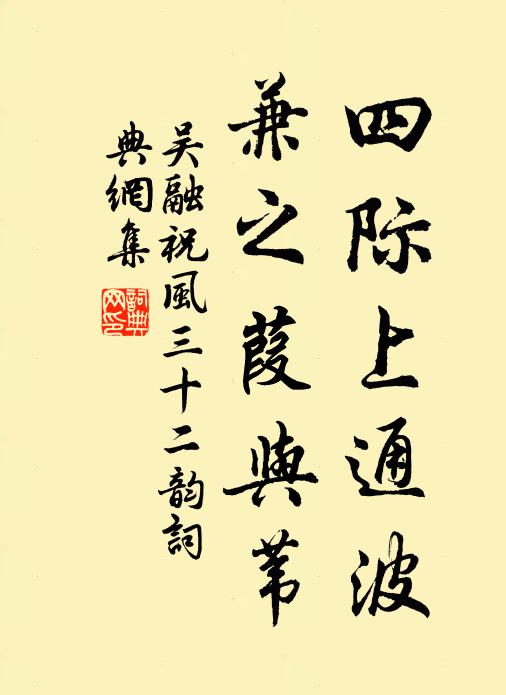 四际上通波
兼之葭與苇
吴融祝風三十二韵詞
典網集
詞典
网印